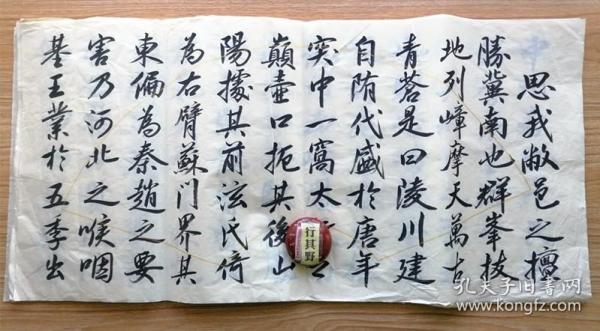 思我敝邑之擅
勝冀南也群峯拔
地列嶂摩天萬古
青蒼是曰陵川建
自隋代盛於唐年
突中一窩太
巔壺口扼其後山
陽據其前泫氏倚
為右臂蘇門界其
東偏為秦趙之要
害乃河北之喉咽
基王業於五季出
行其野
孔夫子旧书网
www.kongfz.com